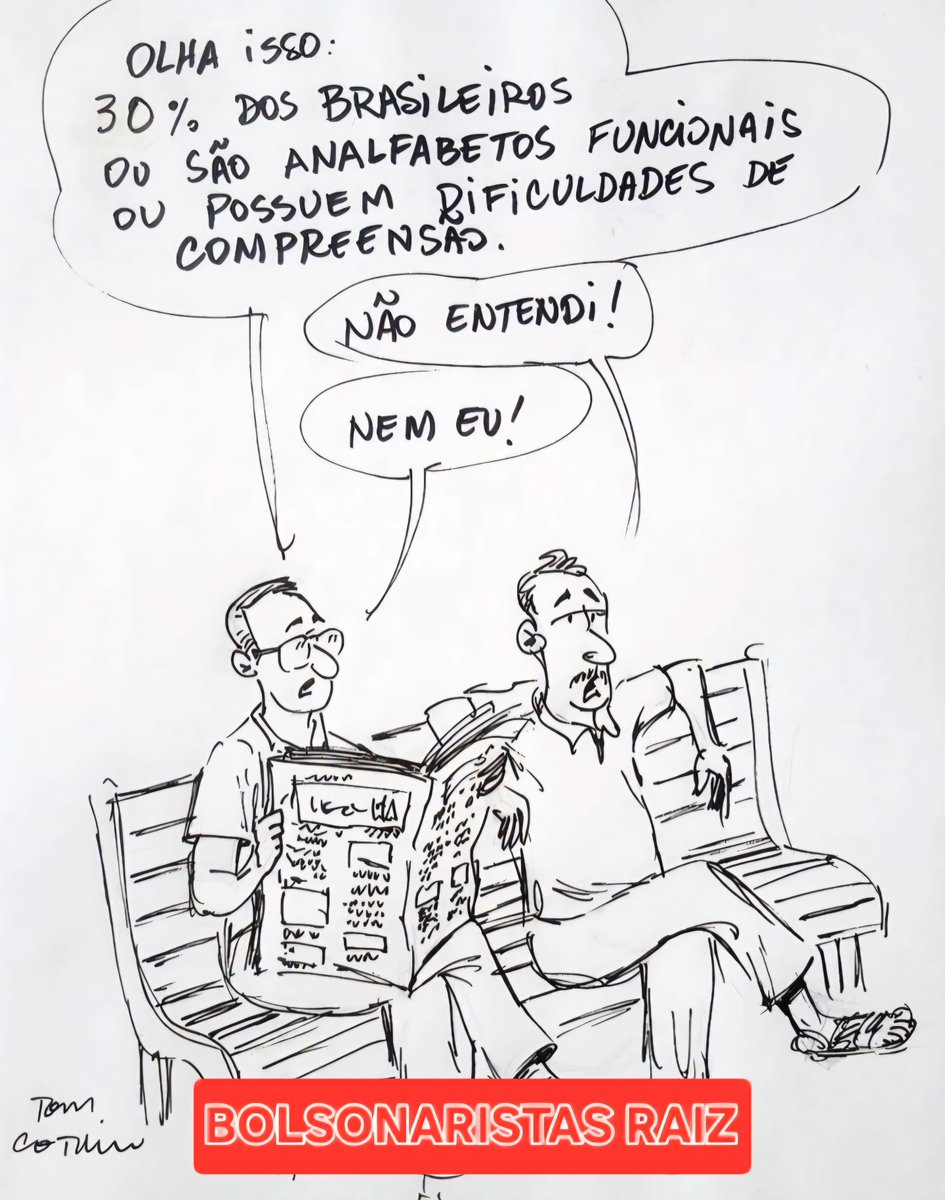 OLHA ISSO:
30% DOS BRASILEIROS
OU SÃO ANALFABETOS FUNCIONAIS
OU POSSUEM DIFICULDADES DE
COMPREENSÃO.
NÃO ENTENDI!
NEM EU!
BOLSONARISTAS RAIZ